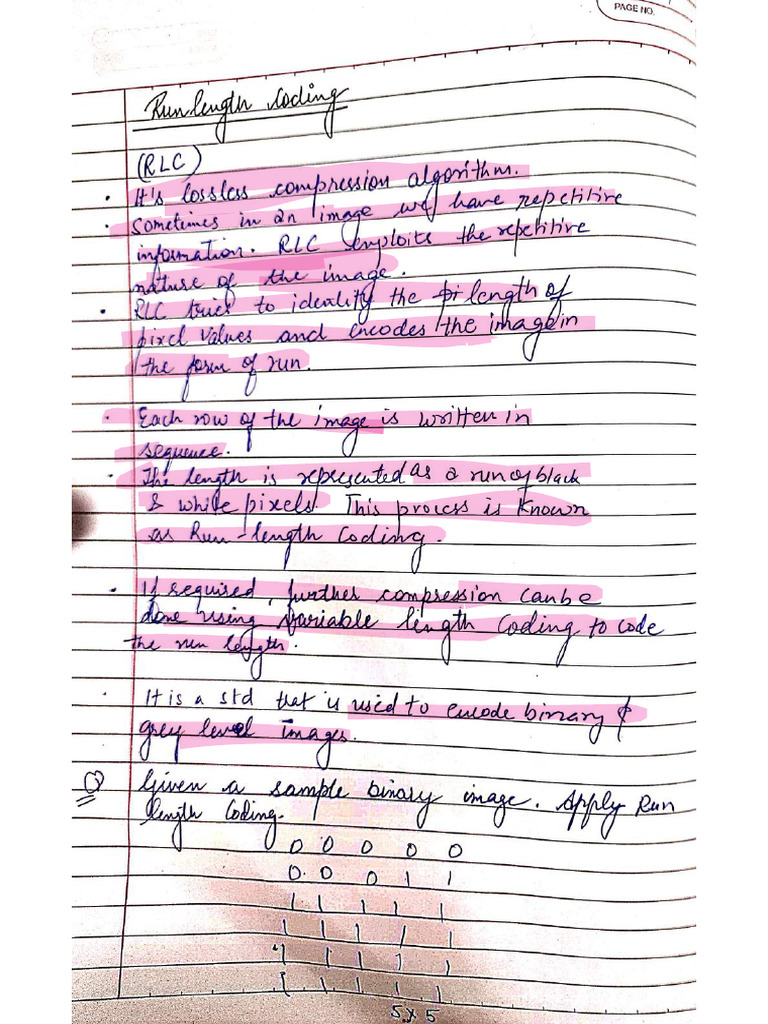 PAGE NO.
Run length Coding
(RLC)
· It's lossless compression algorithm.
· Sometimes in an image we have repetitive
information. RLC exploits the repetitive
nature of the image.
· RLC tries to identify the pi length of
pixel values and encodes the image in
the form of run.
· Each row of the image is written in
sequence.
· The length is represented as a run of black
& white pixels. This process is known
as Run-length Coding.
· If required, further compression can be
done using variable length Coding to code
the run length.
· It is a std that is used to encode binary &
grey level images.
Q Given a sample binary image. Apply Run
length Coding.
0 0 0 0 0
0 0 0 1 1
1 1 1 1 1
1 1 1 1 1
1 1 1 1 1
1 1 1 1 1
5x5